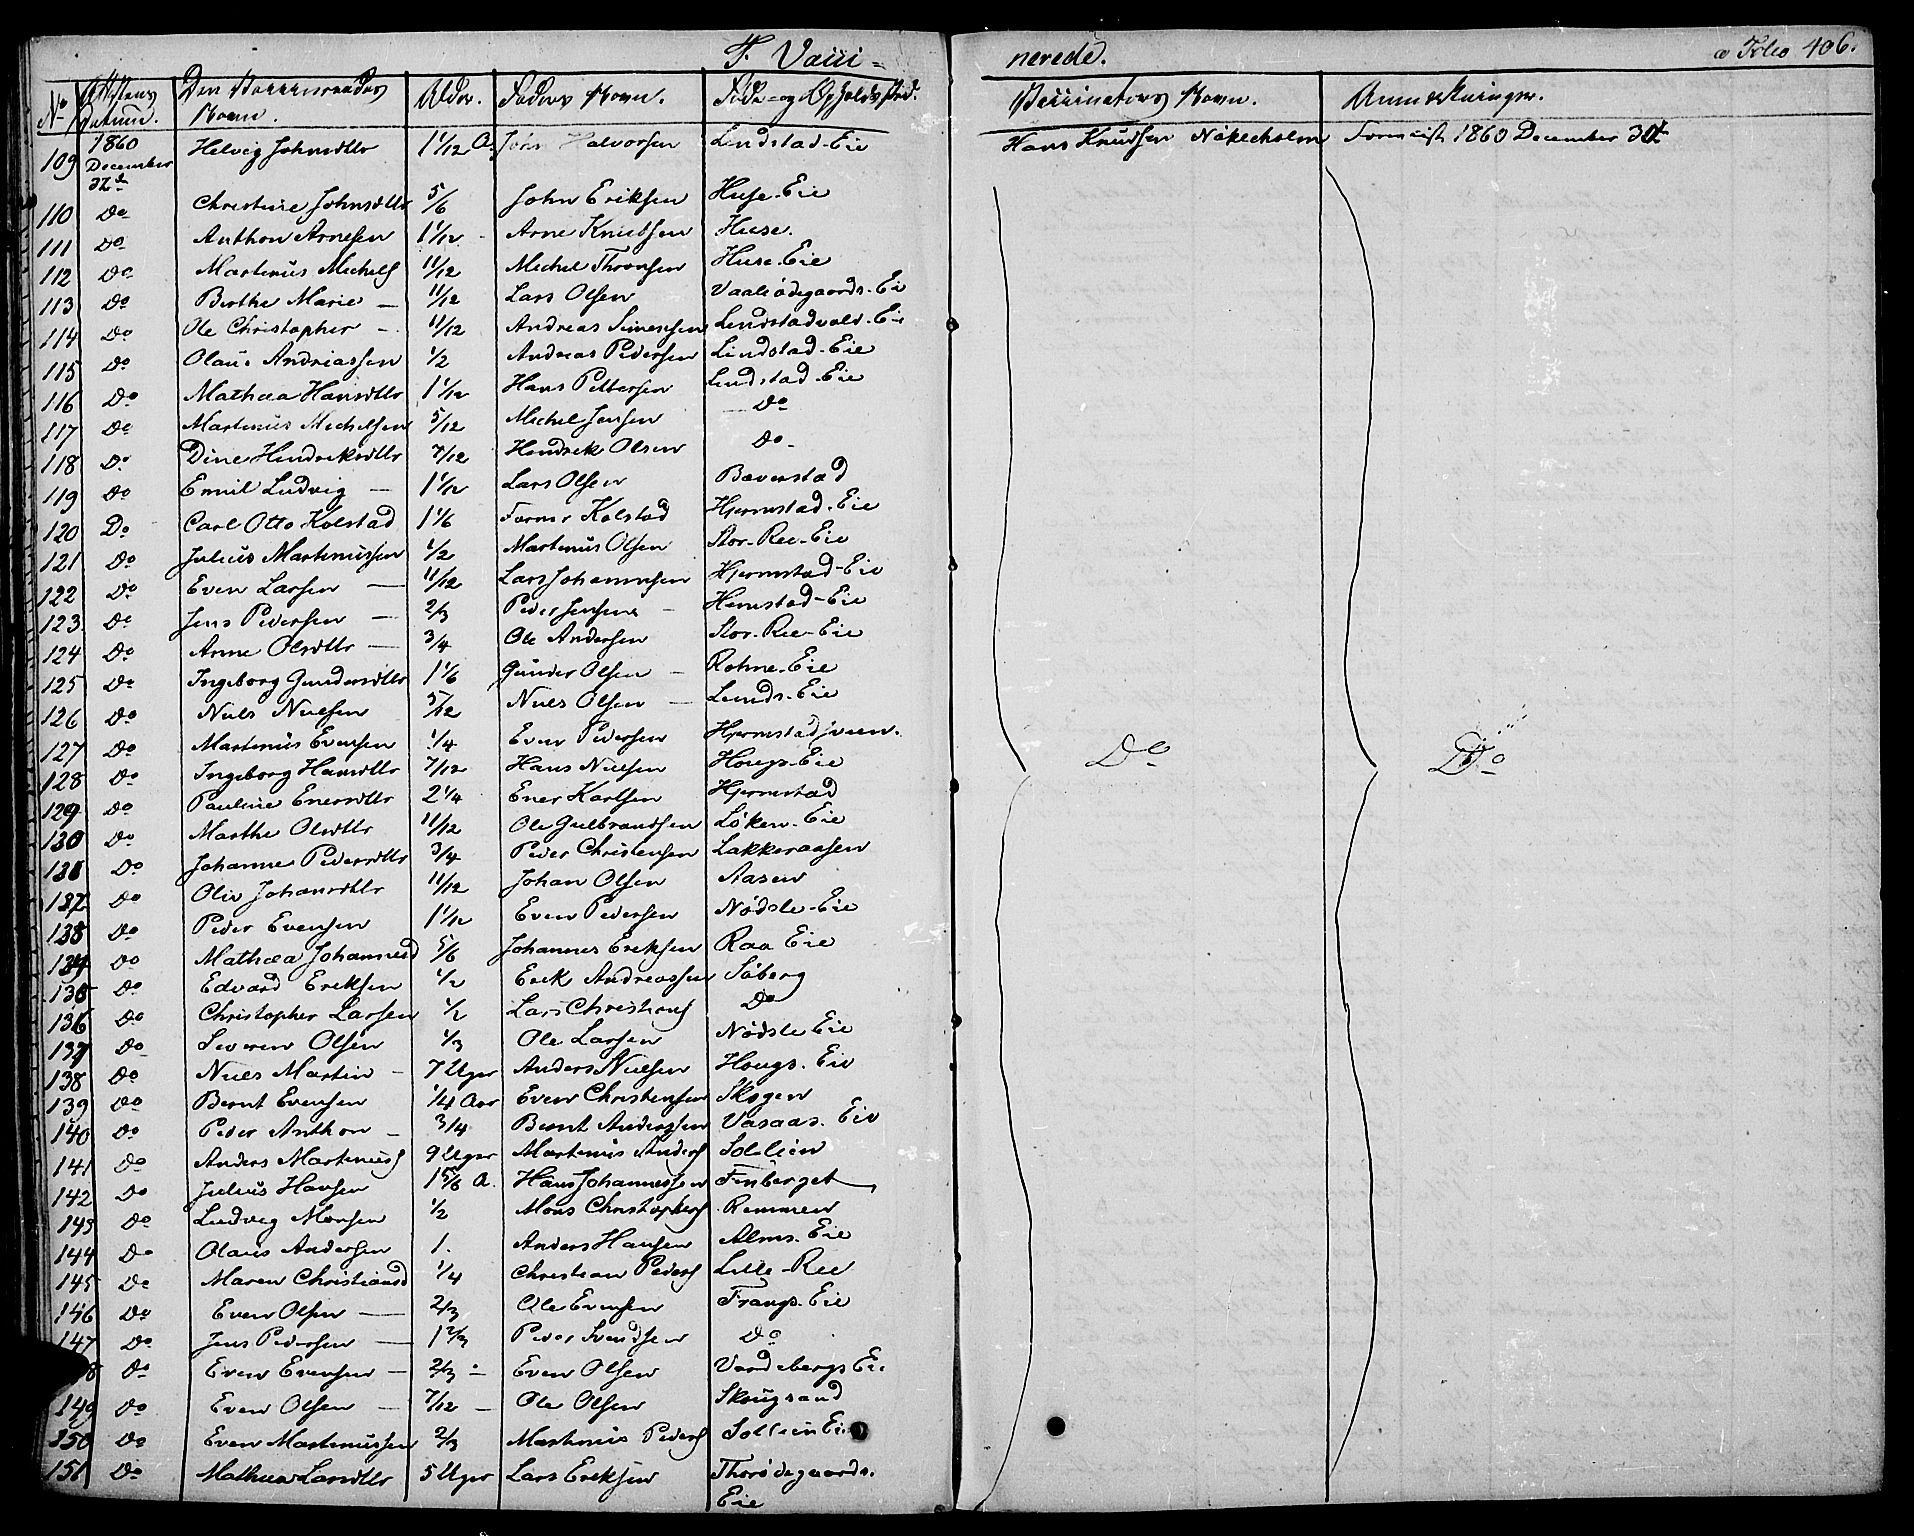 F. Vacci-
nerede.
a Folio 406.
No Attestens Datum. Den Vaccineredes Navn. Alder. Faders Navn. Føde- og Opholds Sted. Vaccinators Navn. Anmærkninger.
109 1860 December Helvig Johnsdtr 1 1/12 A. John Halvorsen Lundstad-Eie Hans Knudsen Nökleholm 1860 December 30t
110 Do Christine Johnsdtr 5/6 John Eriksen Huse-Eie
111 Do Anthon Arnesen 1 1/12 Arne Knudsen Huse.
112 Do Martinus Michels 11/12 Michel Thronsen Huse-Eie
113 Do Berthe Marie — 11/12 Lars Olsen Vaaleødegaards-Ei
114 Do Ole Christopher - 11/12 Andreas Simensen Lundstadvold-Ei
115 Do Olaus Andreassen 1/2 Andreas Pedersen Lindstad-Eie
116 Do Mathea Hansdtr 1 1/12 Hans Pettersen Lundstad-Eie
117 Do Martinus Michelsen 5/12 Michel Jensen Do
118 Do Dine Hendriksdtr 7/12 Hendrik Olsen Do
119 Do Emil Ludvig — 1 1/12 Lars Olsen Bæverstad
120 Do Carl Otto Kolstad 1 1/6 Kolstad Hjermstad-Eie
121 Do Julius Martinussen 1/2 Martinus Olsen Stor-Ree-Eie
122 Do Even Larsen — 11/12 Lars Johannesen Hjermstad-Eie
123 Do Jens Pedersen — 2/3 Peder Jensen — Hemstad-Eie
124 Do Anne Olsdtr — 3/4 Ole Andersen Stor-Ree-Eie
125 Do Ingeborg Gundersdtr 1 1/6 Gunder Olsen — Rohne-Eie
126 Do Niels Nielsen 5/12 Niels Olsen — Lunds-Eie
127 Do Martinus Evensen 1/4 Even Pedersen Hjermstadhveen.
128 Do Ingeborg Hansdtr 7/12 Hans Nielsen Hougs-Eie Do Do
129 Do Pauline Enersdtr 2 1/4 Ener Karlsen Hjermstad
130 Do Marthe Olsdtr 11/12 Ole Gulbrandsen Löken-Eie
131 Do Johanne Pedersdtr 3/4 Peder Christensen Lakkeraasen
132 Do Oliv Johansdtr 11/12 Johan Olsen Aasen
133 Do Peder Evensen 1 1/12 Even Pedersen Nödsle-Eie
134 Do Mathea Johannesd 5/6 Johannes Eriksen Raa Eie
135 Do Edvard Eriksen 1/2 Erik Andreassen Söberg
136 Do Christopher Larsen 1/2 Lars Christians Do
137 Do Severen Olsen 1/3 Ole Larsen Nödsle Eie
138 Do Niels Martin - 7 Uger Anders Nielsen Hougs-Eie
139 Do Bernt Evensen 1/4 Aar Even Christensen Skogen
140 Do Peder Anthon — 3/4 Bernt Anderssen Vasaas. Eie
141 Do Anders Martinus 9 Uger Martinus Anders Sollien
142 Do Julius Hansen 1 5/6 A. Hans Johannessen Finberget
143 Do Ludvig Monsen 1/2 Mons Christophers Remmen
144 Do Olaus Andersen 1. Anders Hansen Alms-Eie
145 Do Maren Christiansd 1/4 Christian Peders Lille-Ree
146 Do Even Olsen — 2/3 Ole Evensen Frangs-Eie
147 Do Jens Pedersen — 1 2/3 Peder Svendsen Do
8 Do Even Evensen — 2/3 - Even Olsen Vardebergs Eie
149 Do Even Olsen — 7/12 — Ole Olsen Skougrand
150 Do Even Martinussen 2/3 Martinus Peders Sollien Eie
151 Do Mathea Larsdtr 5 Uger Lars Eriksen Thorødegaards-
Eie